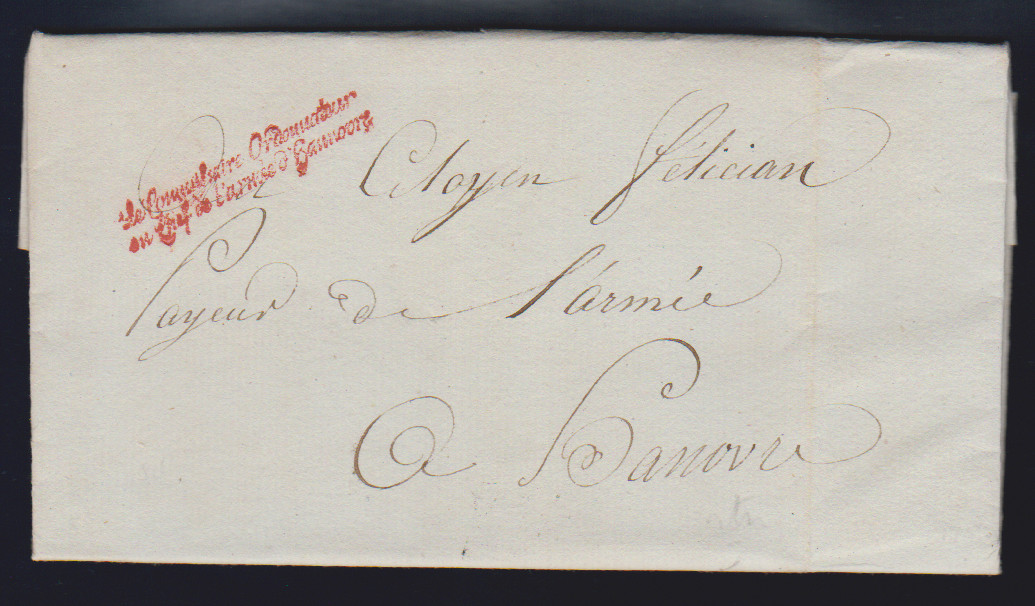 Le Commissaire Ordonnateur
en Chef de l'armée d'Hannovre
Au Citoyen félician
Payeur de l'armée
A Hanovre